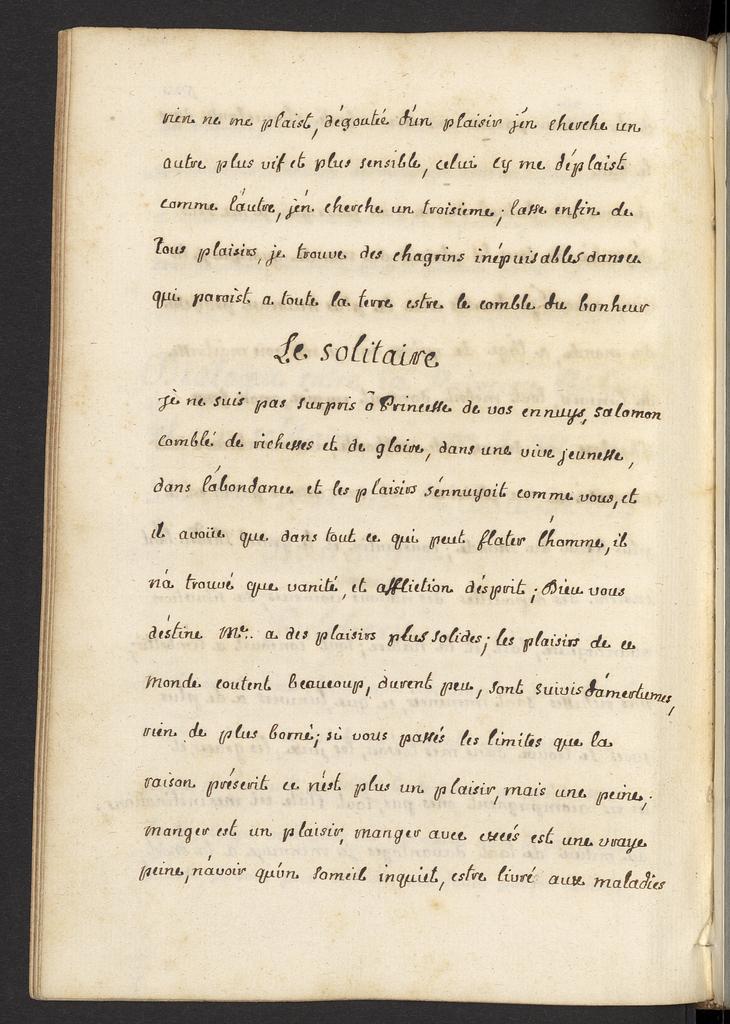 rien ne me plaist, dégoutée d'un plaisir j'en cherche un
autre plus vif et plus sensible, celui cy me déplaist
comme l'autre, j'en cherche un troisieme; lasse enfin de
tous plaisirs, je trouve des chagrins inépuisables dans ce
qui paroist a toute la terre estre le comble du bonheur
Le solitaire
je ne suis pas surpris ô Princesse de vos ennuys, salomon
comblé de richesses et de gloire, dans une vive jeunesse,
dans l'abondance et les plaisirs s'ennuyoit comme vous, et
il avoüe que dans tout ce qui peut flater l'homme, il
n'a trouvé que vanité, et affliction d'esprit; Dieu vous
déstine Me. a des plaisirs plus solides; les plaisirs de ce
monde coutent beaucoup, durent peu, sont suivis d'amertumes,
rien de plus borné; si vous passés les limites que la
raison préscrit ce n'est plus un plaisir, mais une peine;
manger est un plaisir, manger avec excés est une vraye
peine, n'avoir qu'un someil inquiet, estre livré aux maladies